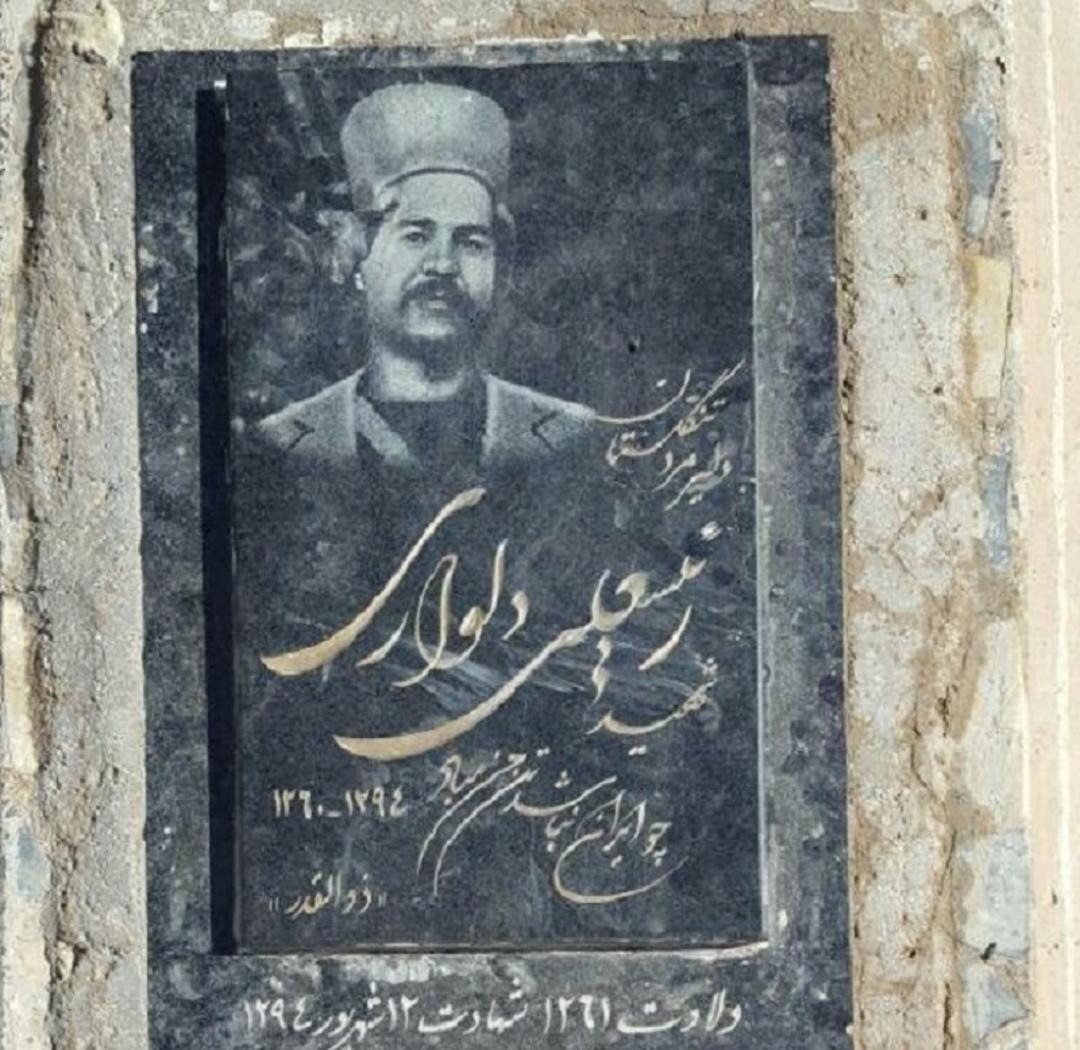 دلیرمرد تنگستان
رئیسعلی دلواری
شهید
چو ایران نباشد تن من مباد
۱۲۶۰-۱۲۹٤
«ذوالقدر»
ولادت ۱۲٦۱ شهادت ۱۲ شهریور ۱۲۹٤